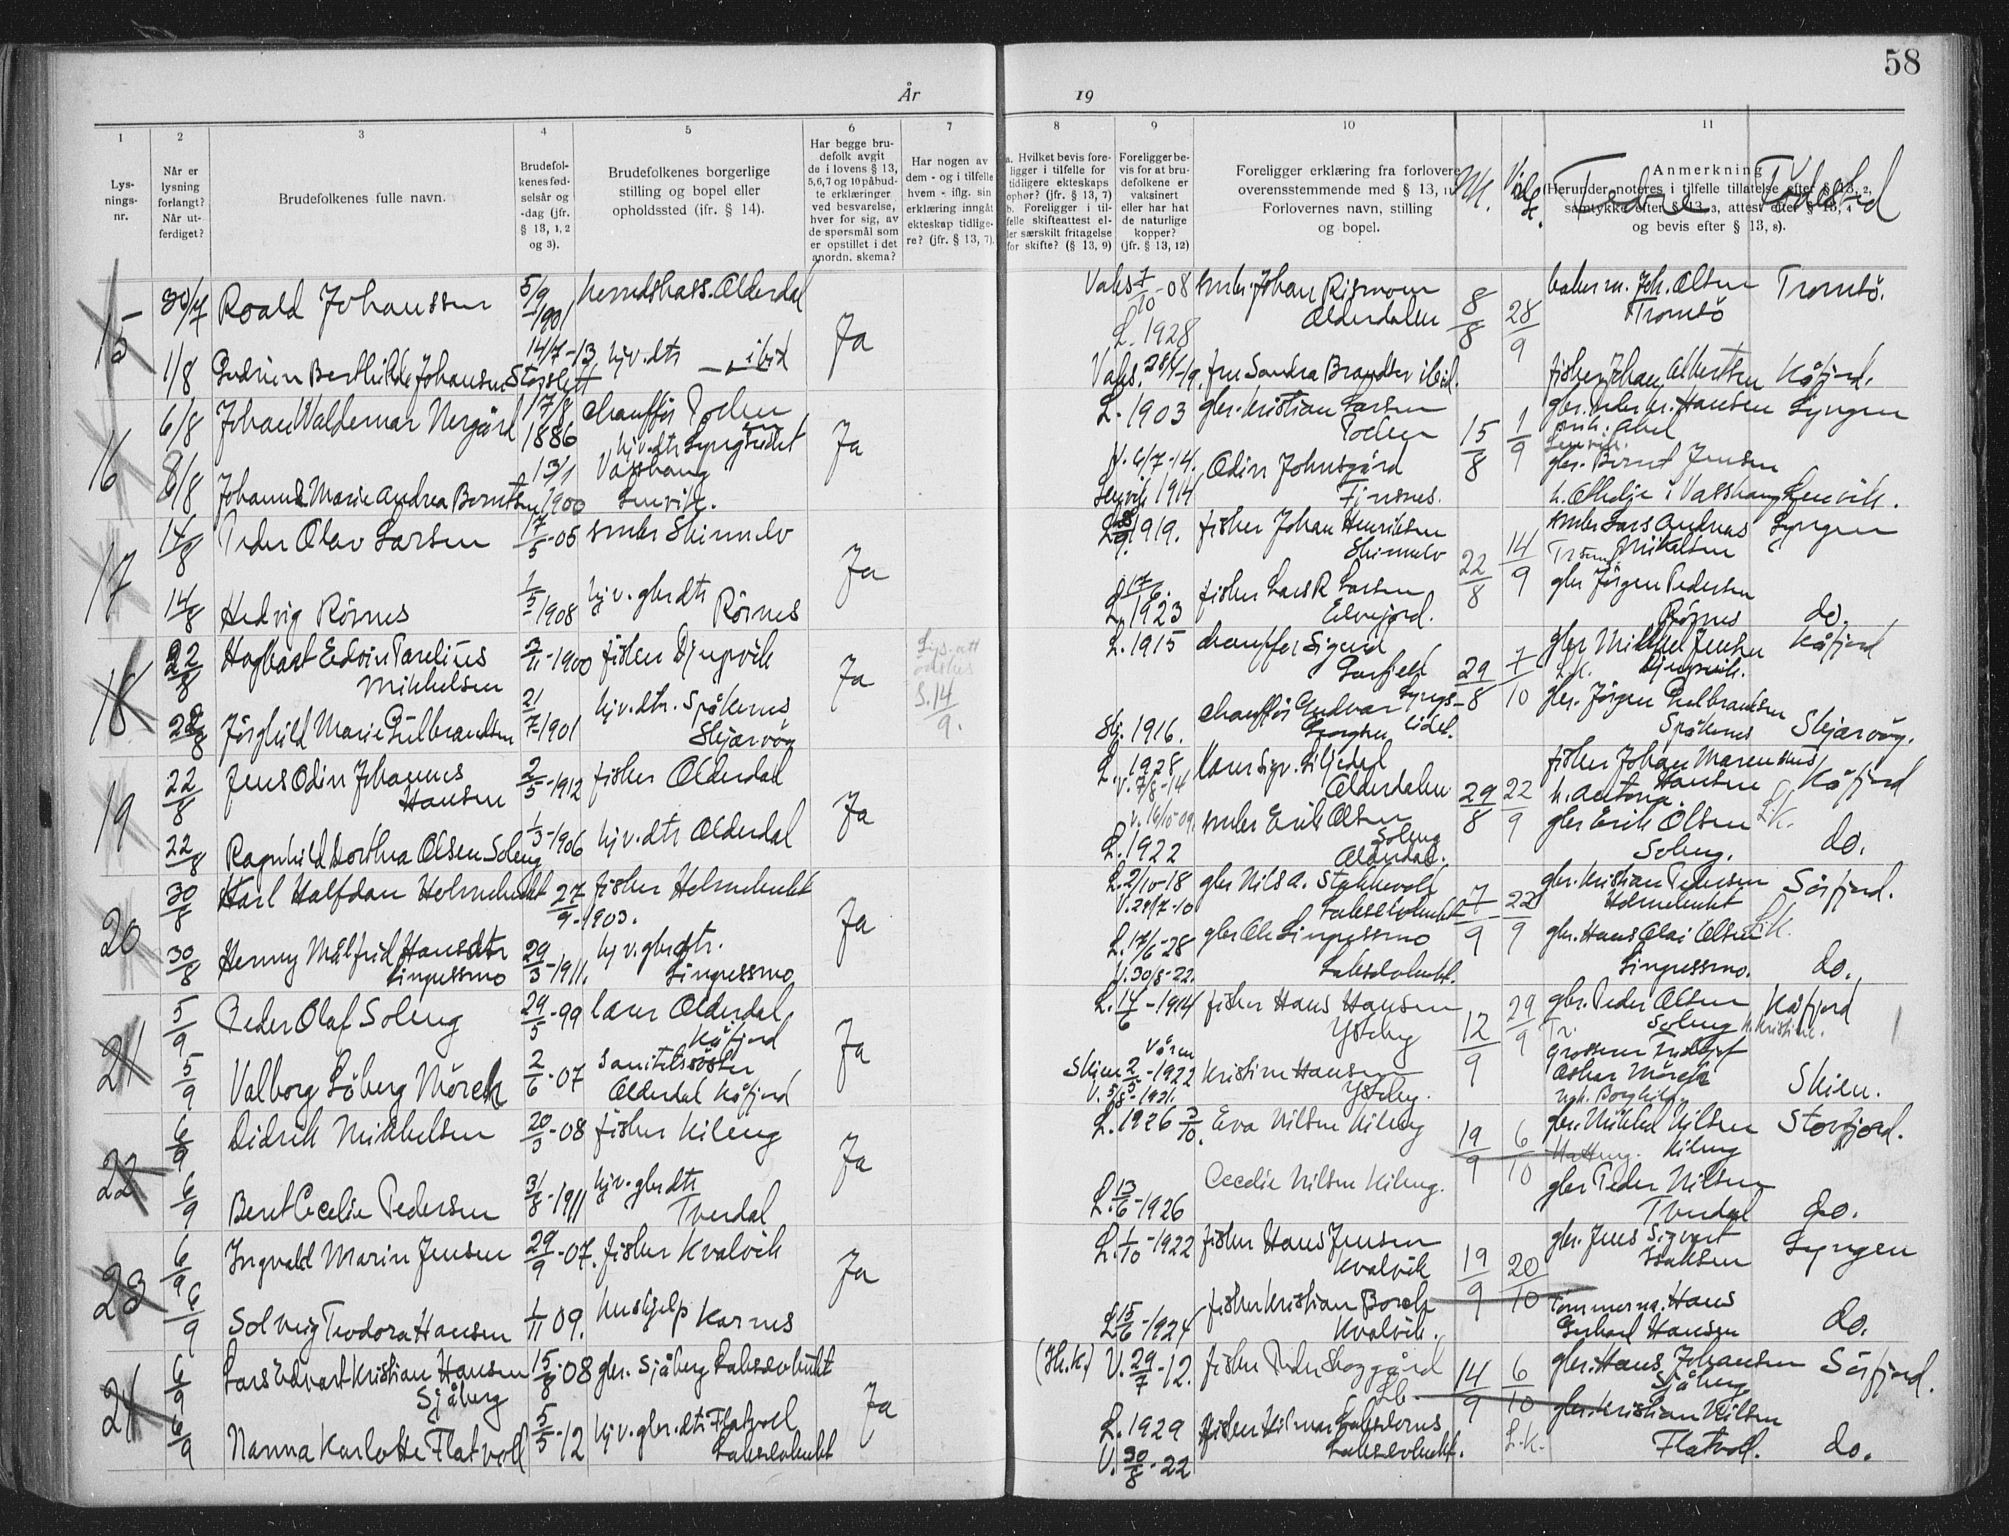 58
År 19
1 2 3 4 5 6 7 8 9 10 11
Lysningsnr.
Når er lysning forlangt? Når utferdiget?
Brudefolkenes fulle navn.
Brudefolkenes fødselsår og -dag (jfr. § 13, 1, 2 og 3).
Brudefolkenes borgerlige stilling og bopel eller opholdssted (jfr. § 14).
Har begge brudefolk avgit de i lovens § 13, 5, 6, 7 og 10 påbudte erklæringer ved besvarelse, hver for sig, av de spørsmål som er opstillet i det anordn. skema?
Har nogen av dem - og i tilfelle hvem - iflg. sin erklæring inngått ekteskap tidligere? (jfr. § 13, 7).
a. Hvilket bevis foreligger i tilfelle for tidligere ekteskaps ophør? (§ 13, 7)
b. Foreligger i tilfelle skifteattest eller særskilt fritagelse for skifte? (§ 13, 9)
Foreligger bevis for at brudefolkene er vaksinert eller har hat de naturlige kopper? (jfr. § 13, 12)
Foreligger erklæring fra forlovere overensstemmende med § 13, 11
Forlovernes navn, stilling og bopel.
Anmerkning
(Herunder noteres i tilfelle tillatelse efter § 13, 2, samtykke efter § 13, 3, attest efter § 13, 4 og bevis efter § 13, 8).
Fedre Fødested
15 30/7 Roald Johanssen 5/9 1901 Olderdal Ja Vaks 7/10-08 Johan Rismoen 8/8 28/9 Joh. Olsen Tromsö.
Olderdalen Tromsö
L. 1928
1/8 Johansen Storslett 14/7-13 hjv. dtr ibid Vaks. fru Sandra Brandser ibid. fisker Johan Albertsen Kåfjord.
16 6/8 Johan Valdemar Nergård 17/8 1886 chaufför Poden Ja L. 1903 gbr. Kristian Larsen 15/8 1/9 gbr. Peder Hansen Lyngen
8/8 Johanne Marie Andrea Berntsen 13/1 1900 hjv. dtr Lyngseidet Vasshaug Lenvik. V. 6/7-14. Odin Johnsgård gbr. Bernt Jensen
Lenvik 1914 Finsnes. i Vasshaug Lenvik.
17 14/8 Peder Olav Larsen 17/5-05 Skinnelv Ja 1919. fisker Johan Henriksen 22/8 14/9 Lars Andreas Lyngen
Skinnelv Mikelsen
14/8 Hedvig Rörnes 1/5 1908 hjv. gbr dtr Rörnes L. 1923 fisker Lars R Larsen gbr Jörgen Pedersen
Elvejord. Rörnes do.
18 22/8 Hagbart Edvin Parelius 3/11-1900 fisker Djupvik Ja L. 1915 chauffer Sigurd 29/8 7/10 gbr Mikkel Jensen Kåfjord
Mikkelsen Djupvik.
22/8 Jörghild Marie Gulbrandsen 2/7-1901 hjv. dtr. Spåkenes Skjærvöy S. 14/9. Skj. 1916. chaufför Gudvar gbr. Jörgen Gulbrandsen
Spåkenes Skjærvöy.
19 22/8 Jens Odin Johannes 2/5-1912 fisker Olderdal Ja L. 1928 29/8 22/9 fisker Johan Marensius
Hansen V. 7/8-14 Olderdalen Hansen Kåfjord
22/8 Ragnhild Dorthea Olsen Soleng 1/3-1906 hjv. dtr Olderdal Erik Olsen gbr Erik Olsen L.K.
L. 1922 Soleng Olderdal. Soleng. do.
20 30/8 Karl Halfdan Holmebukt 27/9-1903. fisker Holmebukt Ja L. 2/10-18 gbr Nils A. Stakkevoll 7/9 22/9 gbr. Kristian Pedersen Sörfjord.
V. 28/7-10 Lakselvbukt Holmebukt
30/8 Henny Målfrid Hansdtr 29/3-1911. hjv. gbr dtr. L. 17/6-28 gbr Ole Lingessmo gbr. Hans Olai Olsen L.K.
Lingessmo Lingessmo V. 30/8-22. Lakselvbukt. Lingessmo. do.
21 5/9 Peder Olaf Soleng 29/5-99 lærer Olderdal Ja L. 14/6-1914 fisker Hans Hansen 12/9 29/9 gbr. Peder Olsen Kåfjord
Kåfjord Ysteby Tr. Soleng
5/9 Valborg Söberg Mörck 2/6-07 Sanitetssöster Skien 1922 Kristine Hansen Oskar Mörck
Olderdal Kåfjord V. 5/8-1921. Ysteby. Skien.
22 6/9 Didrik Mikkelsen 20/3-08 fisker Kileng Ja L. 1926 3/10. Eva Nilsen Kileng 19/9 6/10 gbr. Mikkel Nilsen Storfjord.
Kileng
6/9 Berit Cecelie Pedersen 31/8-1911 hjv. gbr dtr Cecelie Nilsen Kileng. gbr Peder Nilsen
Tverdal L. 13/6-1926 Tverdal do.
23 6/9 Ingvald Marin Jensen 29/9-07. fisker Kvalvik Ja L. 1/10-1922 fisker Hans Jensen 19/9 20/10 gbr. Jens Sigvart Lyngen
Kvalvik Isaksen
6/9 Solveig Teodora Hansen 1/11 09. hushjelp Karnes L 15/6-1924 fisker Kristian Borch Tömmerm. Hans
Kvalvik. Gerhard Hansen do.
24 6/9 Lars Edvart Kristian Hansen 15/8-08 gbr. Sjåberg Lakselvbukt Ja V. 29/7-12. fisker Peder Skoggård 14/9 6/10 gbr. Hans Johansen Sörfjord.
Sjåberg Lb. Sjåberg
6/9 Nanna Karlotte Flatvoll 5/5-12 hjv. gbr. dtr Flatvoll L. 1929 fisker Hilmar gbr. Kristian Nilsen
Lakselvbukt V. 30/8-22 Lakselvbukt. L.K. Flatvoll. do.